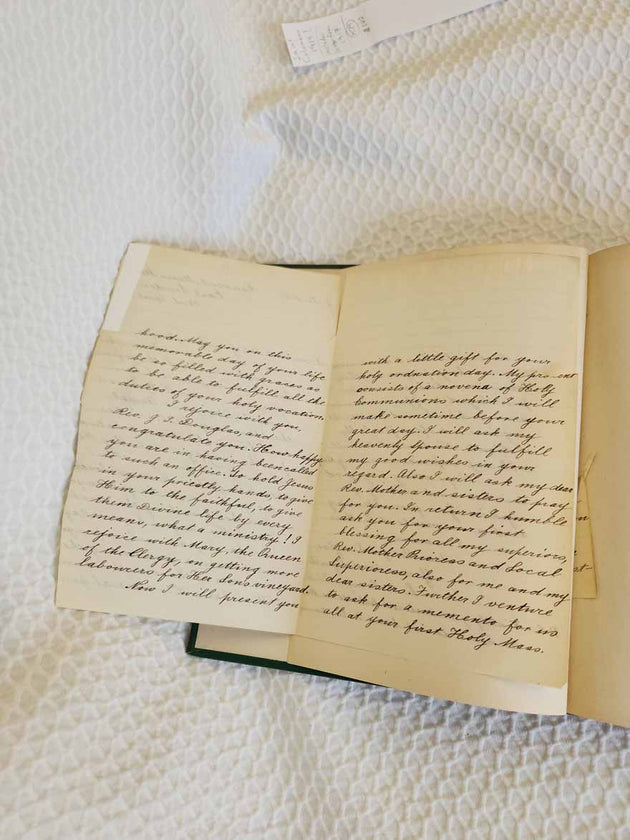 hood. May you on this
memorable day of your life
be so filled with graces as
to be able to fulfill all the
duties of your holy vocation.
I rejoice with you,
Rev. J. I. Douglas, and
congratulate you. How happy
you are in having been called
to such an office. To hold Jesus
in your priestly hands, to give
Him to the faithful, to give
them Divine life by every
means, what a ministry! I
rejoice with Mary, the Queen
of the Clergy, on getting more
labourers for Her Sons vineyard.
Now I will present you
with a little gift for your
holy ordination day. My present
consists of a novena of Holy
Communions which I will
make sometime before your
great day. I will ask my
heavenly Spouse to fulfill
my good wishes in your
regard. Also I will ask my dear
Rev. Mother and sisters to pray
for you. In return I humble
ask you for your first
blessing for all my superiors,
Rev. Mother Prioress and Local
Superioress, also for me and my
dear sisters. Further I venture
to ask for a memento for us
all at your first Holy Mass.